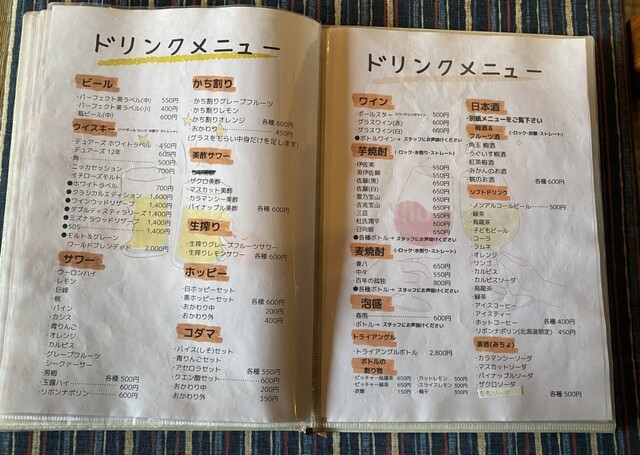 ドリンクメニュー
ビール
・パーフェクト黒ラベル(中) 550円
・パーフェクト黒ラベル(小) 400円
・瓶ビール(中) 600円
ウイスキー
・デュアーズ ホワイトラベル 450円
・デュアーズ 12年 600円
・角 500円
・ニッカセッション 700円
・イチローズモルト
●ホワイトラベル 700円
●クラシカルエディション 1,600円
●ワインウッドリザーブ 1,400円
●ダブルディスティラリーズ 1,400円
●ミズナラウッドリザーブ 1,400円
●505 1,400円
●モルト&グレーン
ワールドブレンデッド 2,000円
サワー
・ウーロンハイ
・レモン
・巨峰
・桃
・パイン
・カシス
・青りんご
・オレンジ
・カルピス
・グレープフルーツ
・シークァーサー
・男梅 各種 500円
・玉露ハイ 600円
・リボンナポリン 600円
かち割り
・かち割りグレープフルーツ
・かち割りレモン
・かち割りオレンジ 各種 600円
・おかわり 450円
(グラスをもらい中身だけを足します)
美酢サワー
・ザクロ美酢
・マスカット美酢
・カラマンシー美酢
・パイナップル美酢 各種 600円
生搾り
・生搾りグレープフルーツサワー
・生搾りレモンサワー 各種 600円
ホッピー
・白ホッピーセット
・黒ホッピーセット 各種 600円
・おかわり中 200円
・おかわり外 400円
コダマ
・バイス(しそ)セット
・青りんごセット
・アセロラセット 各種 550円
・クエン酸セット 600円
・おかわり中 200円
・おかわり外 350円
ドリンクメニュー
ワイン
・ポールスター 500円
・グラスワイン(赤) 600円
・グラスワイン(白) 600円
●ボトルワイン→スタッフにお声掛けください
芋焼酎 (・ロック・水割り・ストレート)
・伊佐美 550円
・黒伊佐錦 550円
・佐藤(黒) 650円
・佐藤(白) 650円
・富乃宝山 650円
・吉兆宝山 650円
・三岳 550円
・杜氏潤平 600円
・日向綾 650円
●各種ボトル→スタッフにお声掛けください
麦焼酎 (・ロック・水割り・ストレート)
・兼八 650円
・中々 550円
・百年の孤独 800円
●各種ボトル→スタッフにお声掛けください
泡盛
・春雨 600円
・ボトル→スタッフにお声掛けください
トライアングル
・トライアングルボトル 2,800円
ボトルの
割り物
・ピッチャー烏龍茶 650円
・ピッチャー緑茶 650円
・炭酸 150円
・カットレモン 300円
・スライスレモン 300円
・梅干 500円
日本酒
・別紙メニューをご覧下さい
梅酒&
フルーツ酒 (・ロック・炭酸・ストレート)
・角玉 梅酒
・うぐいす梅酒
・紅茶梅酒
・みかんのお酒
・桃のお酒 各種 600円
ソフトドリンク
・ノンアルコールビール 500円
・緑茶
・烏龍茶
・子どもビール
・コーラ
・ラムネ
・オレンジ
・リンゴ
・カルピス
・カルピスソーダ
・烏龍茶
・緑茶
・アイスコーヒー
・アイスティー
・ホットコーヒー 各種 400円
・リボンナポリン(北海道限定) 450円
美酢(みちょ)
・カラマンシーソーダ
・マスカットソーダ
・パイナップルソーダ
・ザクロソーダ
各種 500円